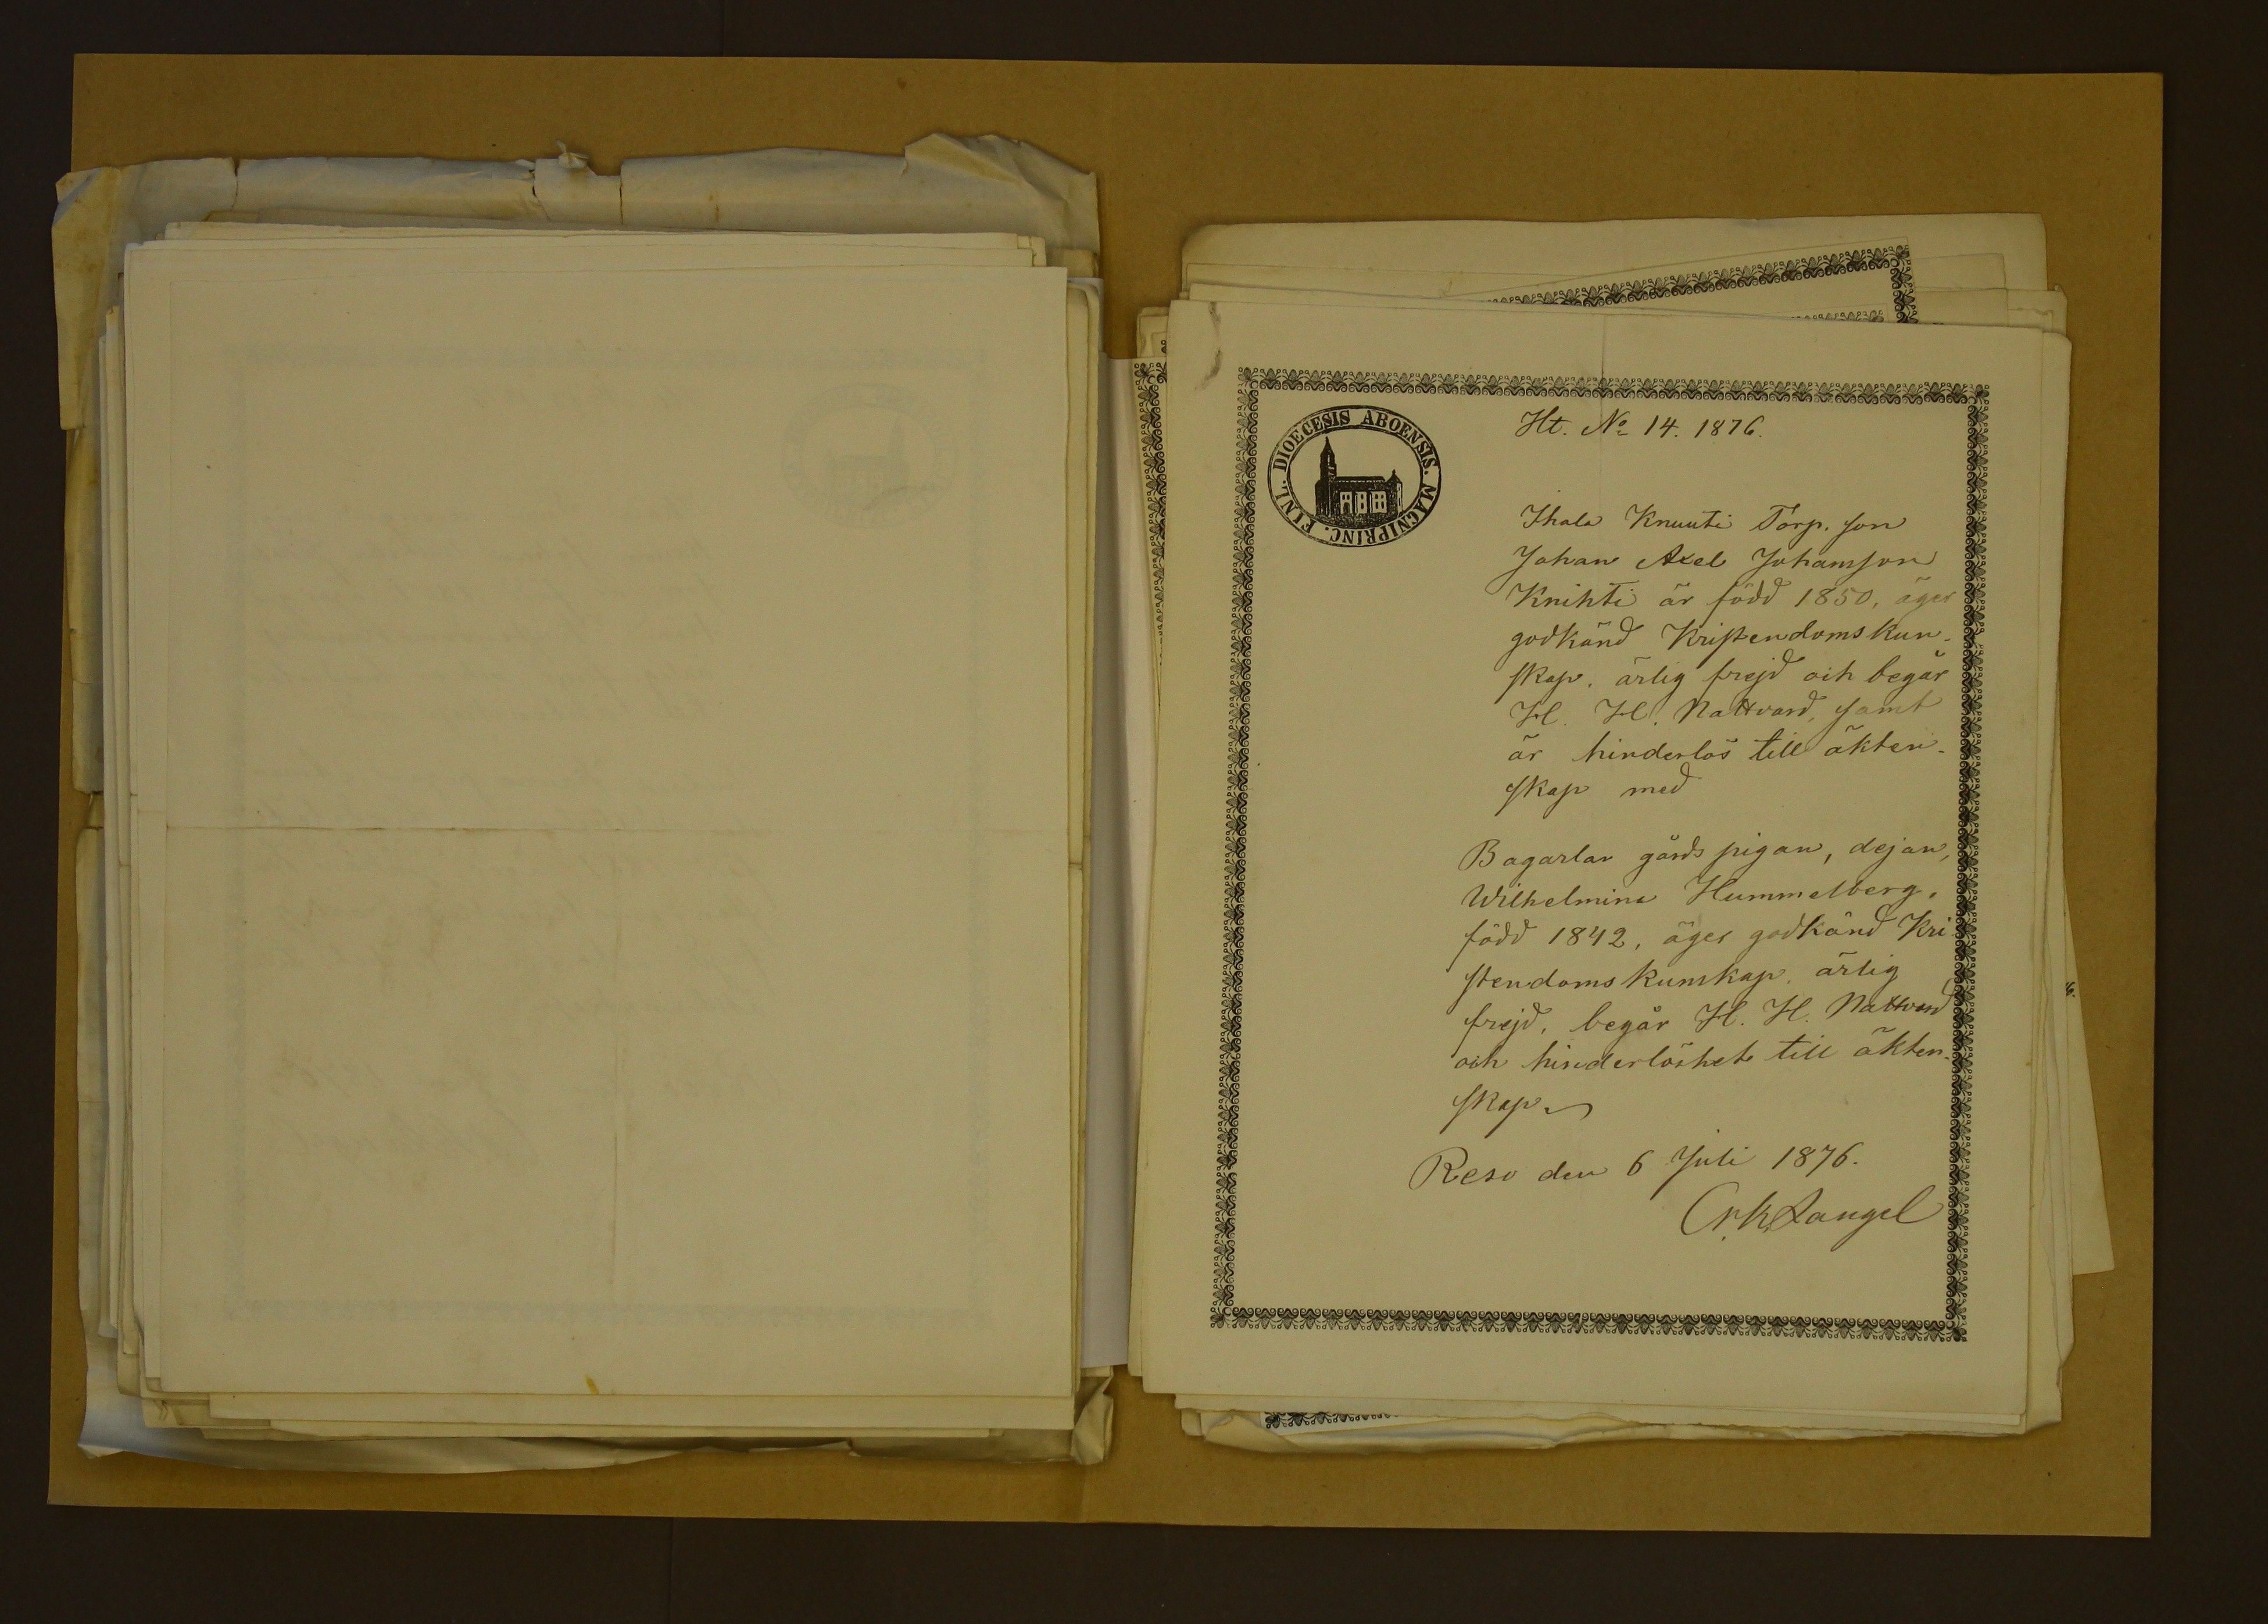 DIOECESIS ABOENSIS. MAGNIPRINC. FINL.
Ht. No 14. 1876.
Ihala Knuuti Torp. son
Johan Axel Johansson
Knihti är född 1850, äger
godkänd Kristendomskun-
skap, ärlig frejd och begår
H. H. Nattvard, samt
är hinderlös till äkten-
skap med
Bagarlar gårds pigan, dejan,
Wilhelmina Hummelberg,
född 1842, äger godkänd Kri-
stendomskunskap, ärlig
frejd, begår H. H. Nattvard
och hinderlöshet till äkten-
skap
Reso den 6 Juli 1876.